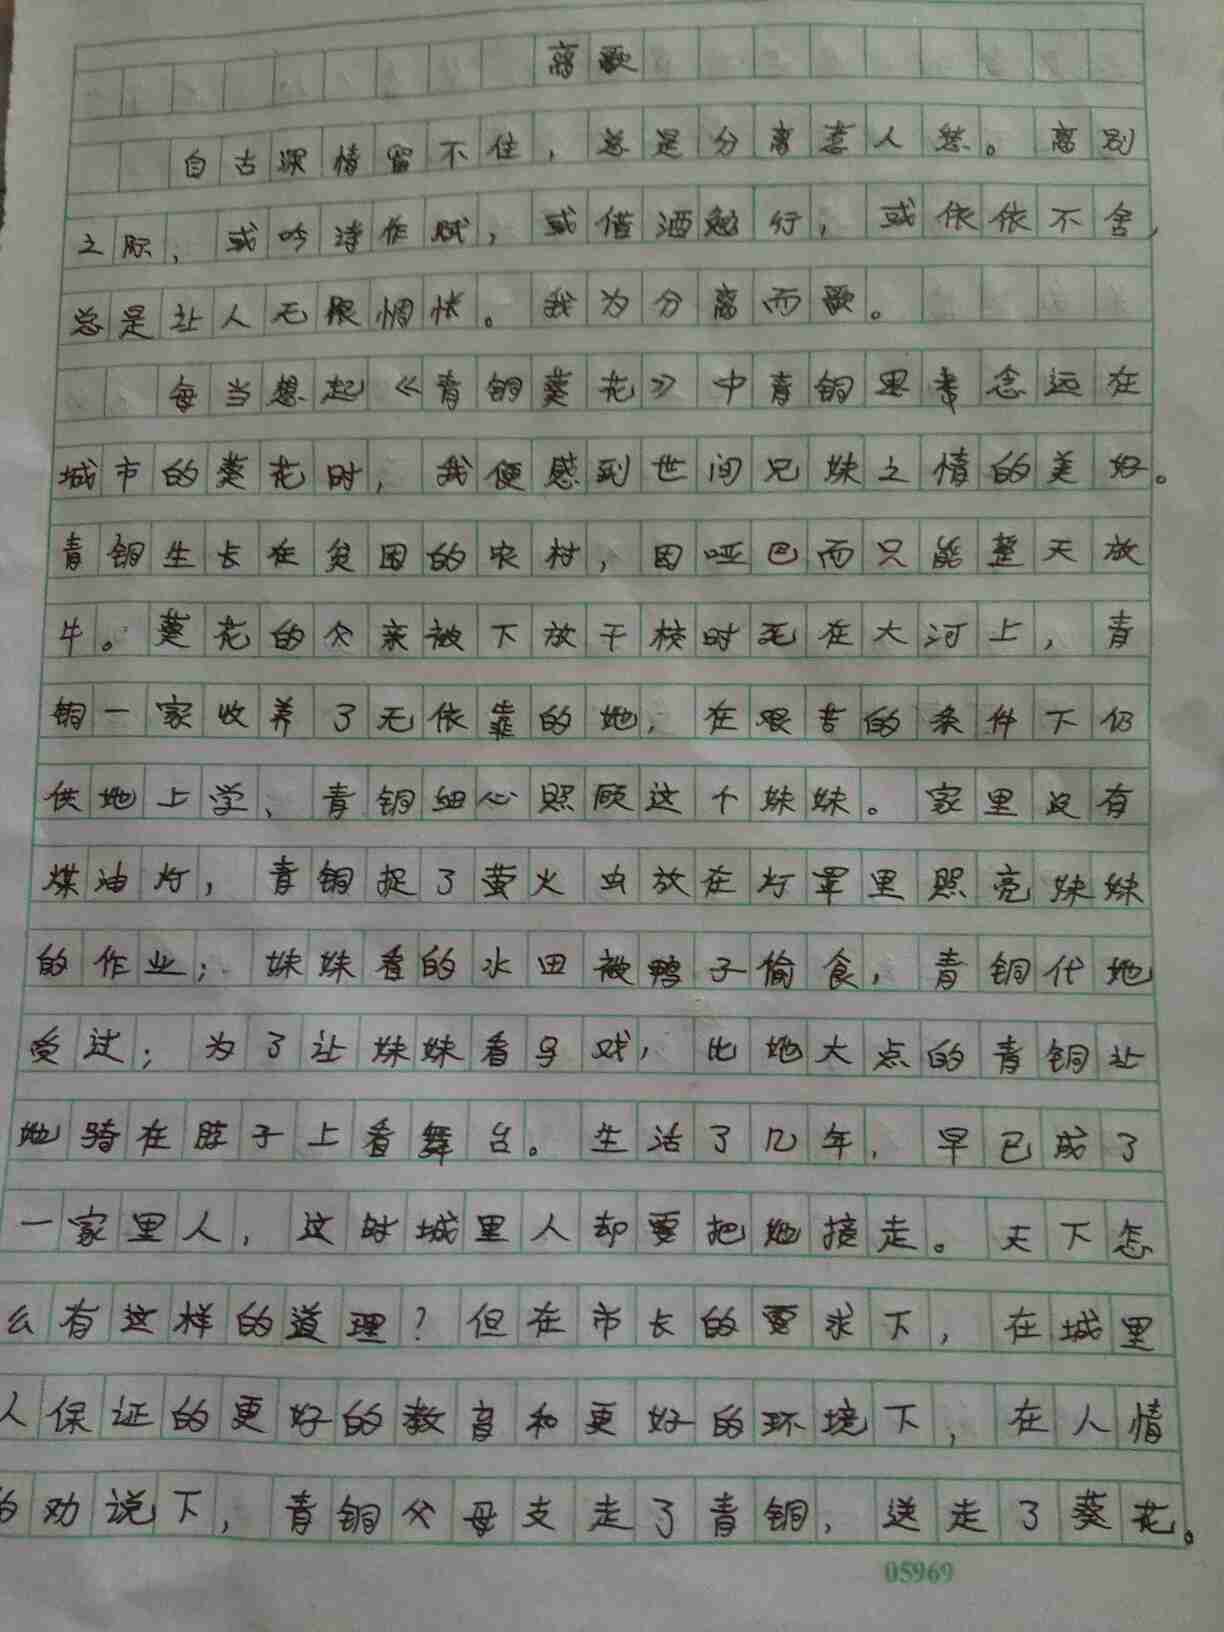 离歌
自古深情留不住，总是分离惹人愁。离别
之际，或吟诗作赋，或借酒勉行，或依依不舍，
总是让人无限惆怅。我为分离而歌。
每当想起《青铜葵花》中青铜思念远在
城市的葵花时，我便感到世间兄妹之情的美好。
青铜生长在贫困的农村，因哑巴而只能整天放
牛。葵花的父亲被下放干校时死在大河上，青
铜一家收养了无依靠的她，在艰苦的条件下仍
供她上学、青铜细心照顾这个妹妹。家里没有
煤油灯，青铜捉了萤火虫放在灯罩里照亮妹妹
的作业；妹妹看的水田被鸭子偷食，青铜代她
受过；为了让妹妹看马戏，比她大点的青铜让
她骑在脖子上看舞台。生活了几年，早已成了
一家里人，这时城里人却要把她接走。天下怎
么有这样的道理？但在市长的要求下，在城里
人保证的更好的教育和更好的环境下，在人情
的劝说下，青铜父母支走了青铜，送走了葵花。
05969